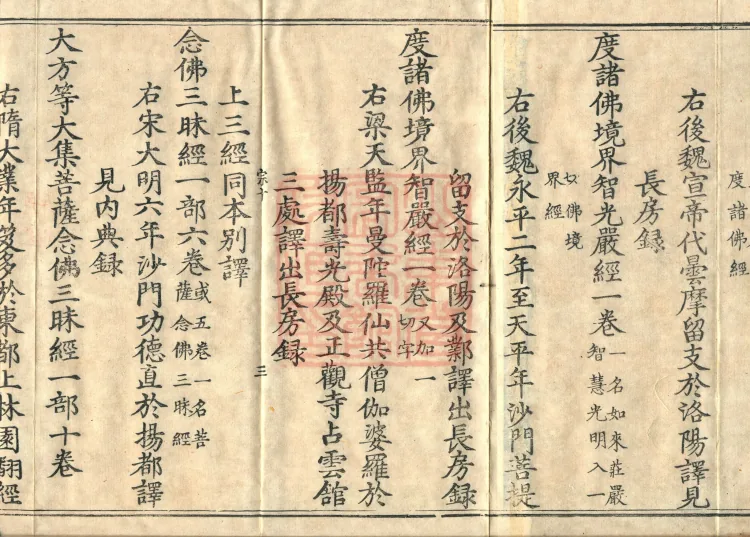 度諸佛經
右後魏宣帝代曇摩留支於洛陽譯見
長房録
度諸佛境界智光嚴經一卷一名如來莊嚴
智慧光明入一
切佛境
界經
右後魏永平二年至天平年沙門菩提
留支於洛陽及鄴譯出長房録
度諸佛境界智嚴經一卷又加一
切字
右梁天監年曼陀羅仙共僧伽婆羅於
揚都壽光殿及正觀寺占雲館
三處譯出長房録
宗十 三
上三經同本別譯
念佛三昧經一部六卷或五卷一名菩
薩念佛三昧經
右宋大明六年沙門功德直於揚都譯
見内典録
大方等大集菩薩念佛三昧經一部十卷
右隋大業年笈多於東都上林園翻經